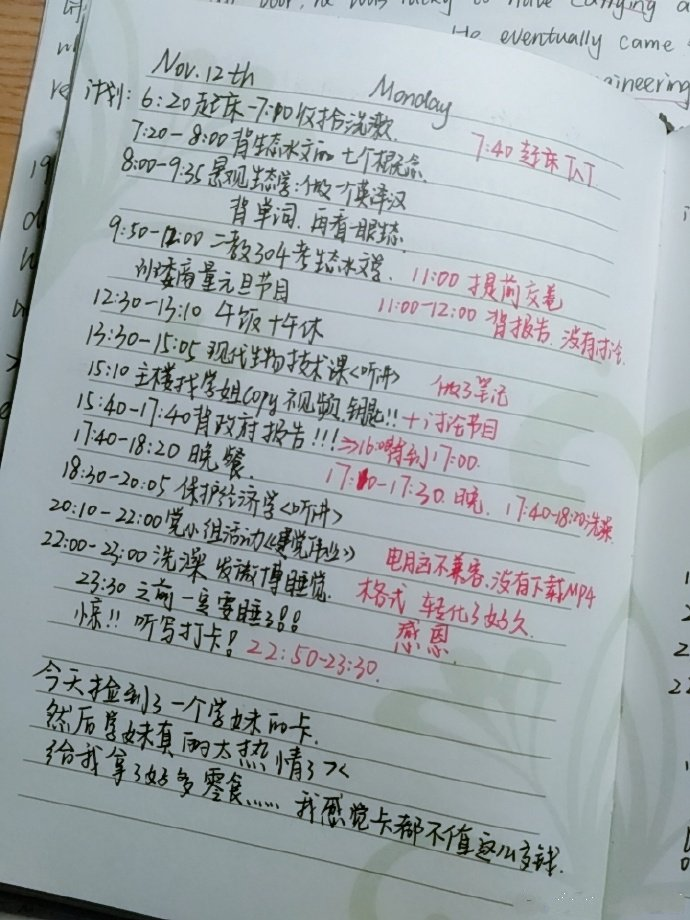 He eventually came
Nov. 12th Monday
计划: 6:20起床-7:10收拾洗漱.
7:40 起床 T^T
7:20-8:00 背生态水文的七个概念.
8:00-9:35 景观生态学:做个英译汉
背单词.再看一眼生态.
9:50-12:00 二教304考生态水文学. 11:00 提前交卷
班委商量元旦节目 11:00-12:00 背报告.没有讨论.
12:30-13:10 午饭+午休
13:30-15:05 现代生物技术课<听讲> 做了笔记
15:10 主楼找学姐copy视频,钥匙!! +讨论节目
15:40-17:40背政府报告!!! ⇒16:00背到17:00.
17:40-18:20 晚餐. 17:10-17:30.晚. 17:40-18:20洗澡
18:30-20:05 保护经济学<听讲>
20:10-22:00党小组活动《建党伟业》 电脑不兼容.没有下载MP4
22:00-23:00 洗澡 发微博睡觉. 格式 转化了好久.
23:30 之前一定要睡了!! 感恩
惊!! 听写打卡! 22:50-23:30.
今天捡到了一个学妹的卡.
然后学妹真的太热情了><
给我拿了好多零食...... 我感觉卡都不值这么多钱.